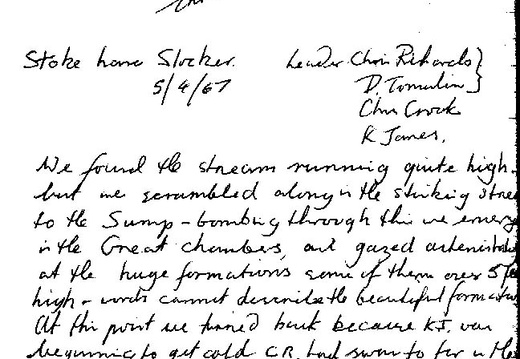 Stoke Lane Slocker. Leader Chris Richards }
5/4/67 D. Tomalin }
Chris Crook
K James.
We found the stream running quite high -
but we scrambled along in the stinking
to the Sump - bombing through this we
in the Great chambers, and gazed
at the huge formations some of them over
high - words cannot describe the beautiful
At this point we turned back because K.J. was
beginning to get cold C.R. had swum to for